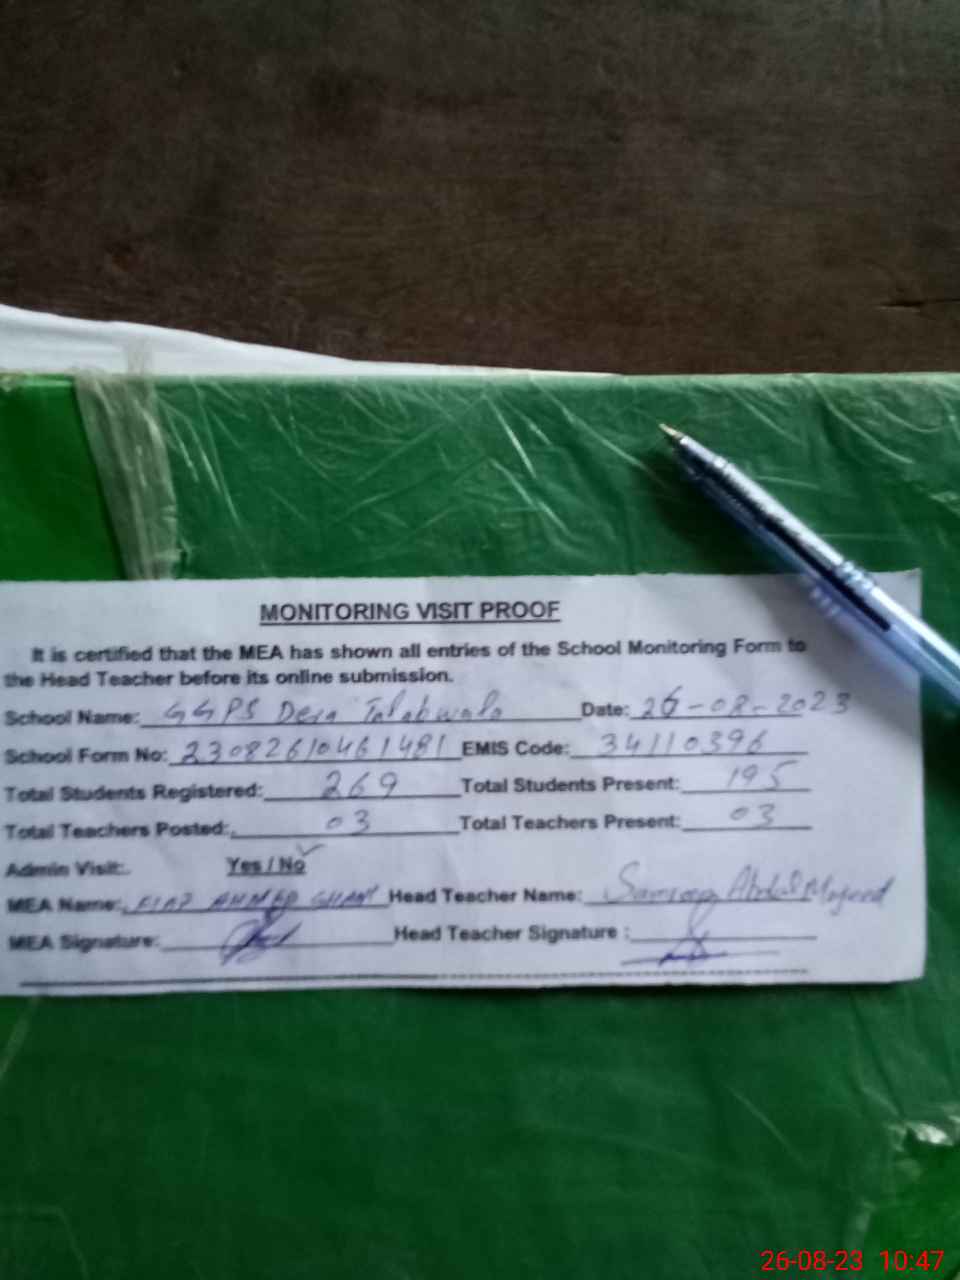 MONITORING VISIT PROOF
It is certified that the MEA has shown all entries of the School Monitoring Form to
the Head Teacher before its online submission.
School Name: GGPS Dera Talabwala Date: 26-08-2023
School Form No: 23082610461481 EMIS Code: 34110396
Total Students Registered: 269 Total Students Present: 195
Total Teachers Posted: 03 Total Teachers Present: 03
Admin Visit: Yes / No ✓
MEA Name: AHMED Head Teacher Name: Abdul Majeed
MEA Signature: Head Teacher Signature :
26-08-23 10:47